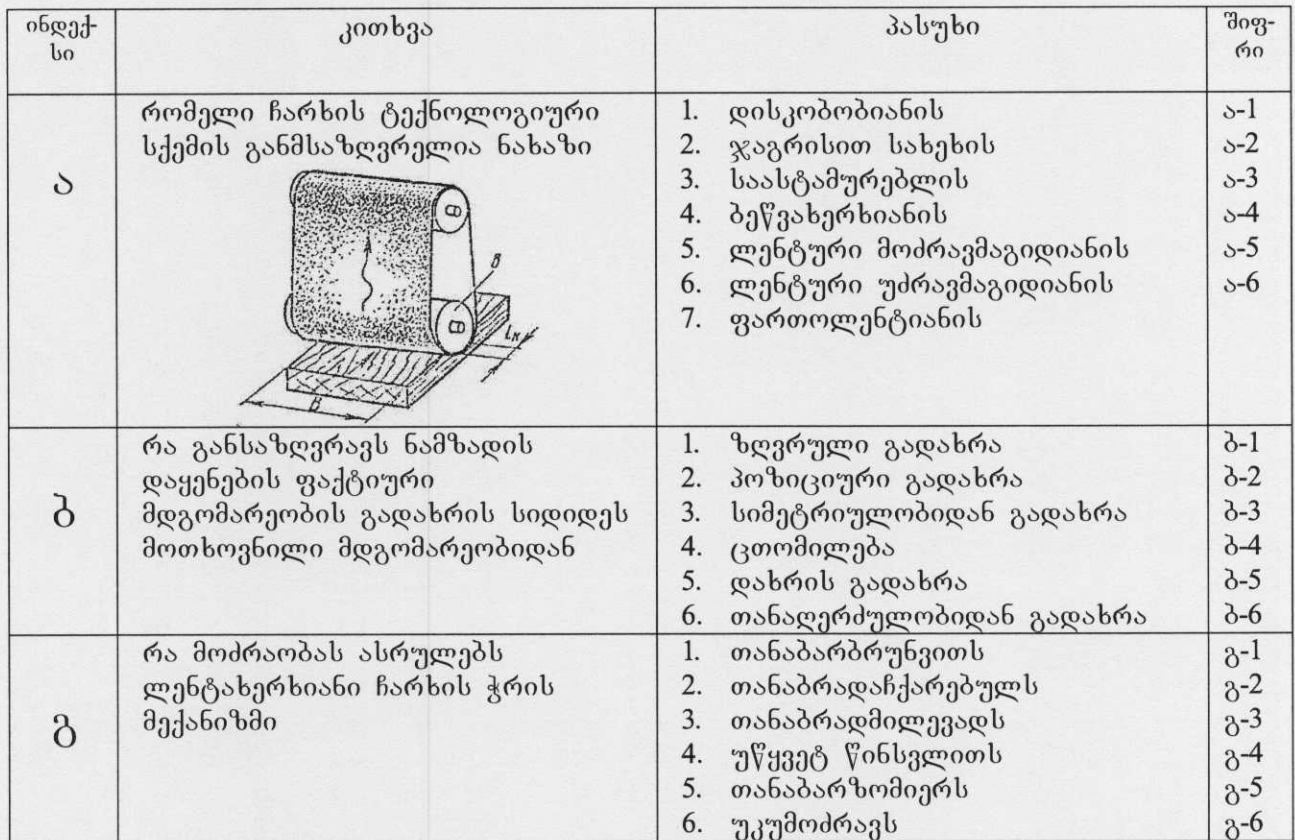 ინდექ-
სი
კითხვა
პასუხი
შიფ-
რი
ა
რომელი ჩარხის ტექნოლოგიური
სქემის განმსაზღვრელია ნახაზი
в
Lк
B
1. დისკობობიანის
2. ჯაგრისით სახეხის
3. საასტამურებლის
4. ბეწვახერხიანის
5. ლენტური მოძრავმაგიდიანის
6. ლენტური უძრავმაგიდიანის
7. ფართოლენტიანის
ა-1
ა-2
ა-3
ა-4
ა-5
ა-6
ბ
რა განსაზღვრავს ნამზადის
დაყენების ფაქტიური
მდგომარეობის გადახრის სიდიდეს
მოთხოვნილი მდგომარეობიდან
1. ზღვრული გადახრა
2. პოზიციური გადახრა
3. სიმეტრიულობიდან გადახრა
4. ცთომილება
5. დახრის გადახრა
6. თანაღერძულობიდან გადახრა
ბ-1
ბ-2
ბ-3
ბ-4
ბ-5
ბ-6
გ
რა მოძრაობას ასრულებს
ლენტახერხიანი ჩარხის ჭრის
მექანიზმი
1. თანაბარბრუნვითს
2. თანაბრადაჩქარებულს
3. თანაბრადმილევადს
4. უწყვეტ წინსვლითს
5. თანაბარზომიერს
6. უკუმოძრავს
გ-1
გ-2
გ-3
გ-4
გ-5
გ-6